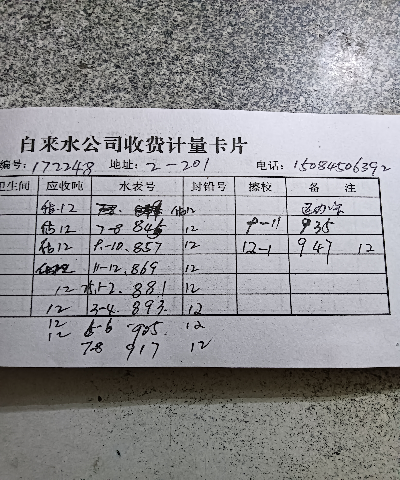 自来水公司收费计量卡片
编号:172248 地址:2-201 电话:15084506392
卫生间 应收吨 水表号 封铅号 擦校 备 注
估12
估12 7-8 846 12 9-11 935
估12 9-10.857 12 12-1 947 12
11-12.869 12
12 1-2.881 12
12 3-4.893. 12
12 5-6 905 12
12 7-8 917 12